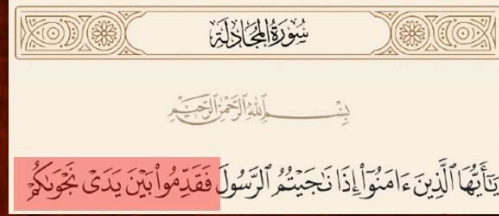 سُورَةُ المُجَادلَة
بِسْمِ اللَّهِ الرَّحْمَٰنِ الرَّحِيمِ
يَٰٓأَيُّهَا ٱلَّذِينَ ءَامَنُوٓاْ إِذَا نَٰجَيۡتُمُ ٱلرَّسُولَ فَقَدِّمُواْ بَيۡنَ يَدَيۡ نَجۡوَىٰكُمۡ